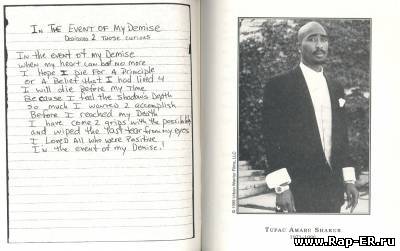 In The Event of My Demise
Dedicated 2 Those Curious
In the event of my Demise
when my heart can beat no more
I Hope I Die For A Principle
or A Belief that I had Lived 4
I will die Before My Time
Because I feel the shadow's Depth
so much I wanted 2 accomplish
Before I reached my Death
I have come 2 grips with the possibility
and wiped the last tear from my eyes
I Loved All who were Positive
In the event of my Demise!
Tupac Amaru Shakur
1971-1996
www.Rap-ER.ru